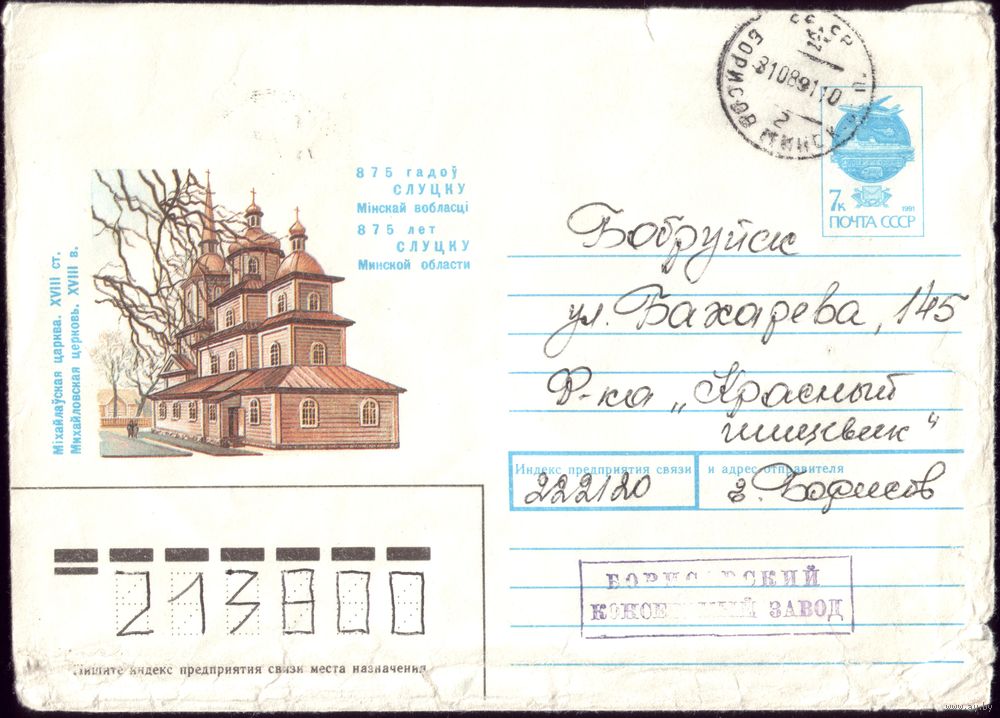 СССР
БОРИСОВ МИНСК
31089110
2
7к
1991
ПОЧТА СССР
875 гадоў
СЛУЦКУ
Мінскай вобласці
875 лет
СЛУЦКУ
Минской области
Міхайлаўская царква. XVIII ст.
Михайловская церковь. XVIII в.
Бобруйск
ул. Бахарева, 145
Ф-ка „Красный
пищевик“
Индекс предприятия связи и адрес отправителя
222120 г. Борисов
БОРИСОВСКИЙ
КОНСЕРВНЫЙ ЗАВОД
213800
Пишите индекс предприятия связи места назначения
www.ay.by